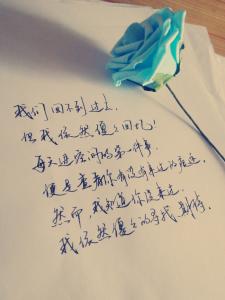 我们回不到过去，
但我依然傻々回忆！
每天进空间的第一件事，
便是查看你有没有来过的痕迹，
然而，我知道你没来过，
我依然傻々的寻找、期待。